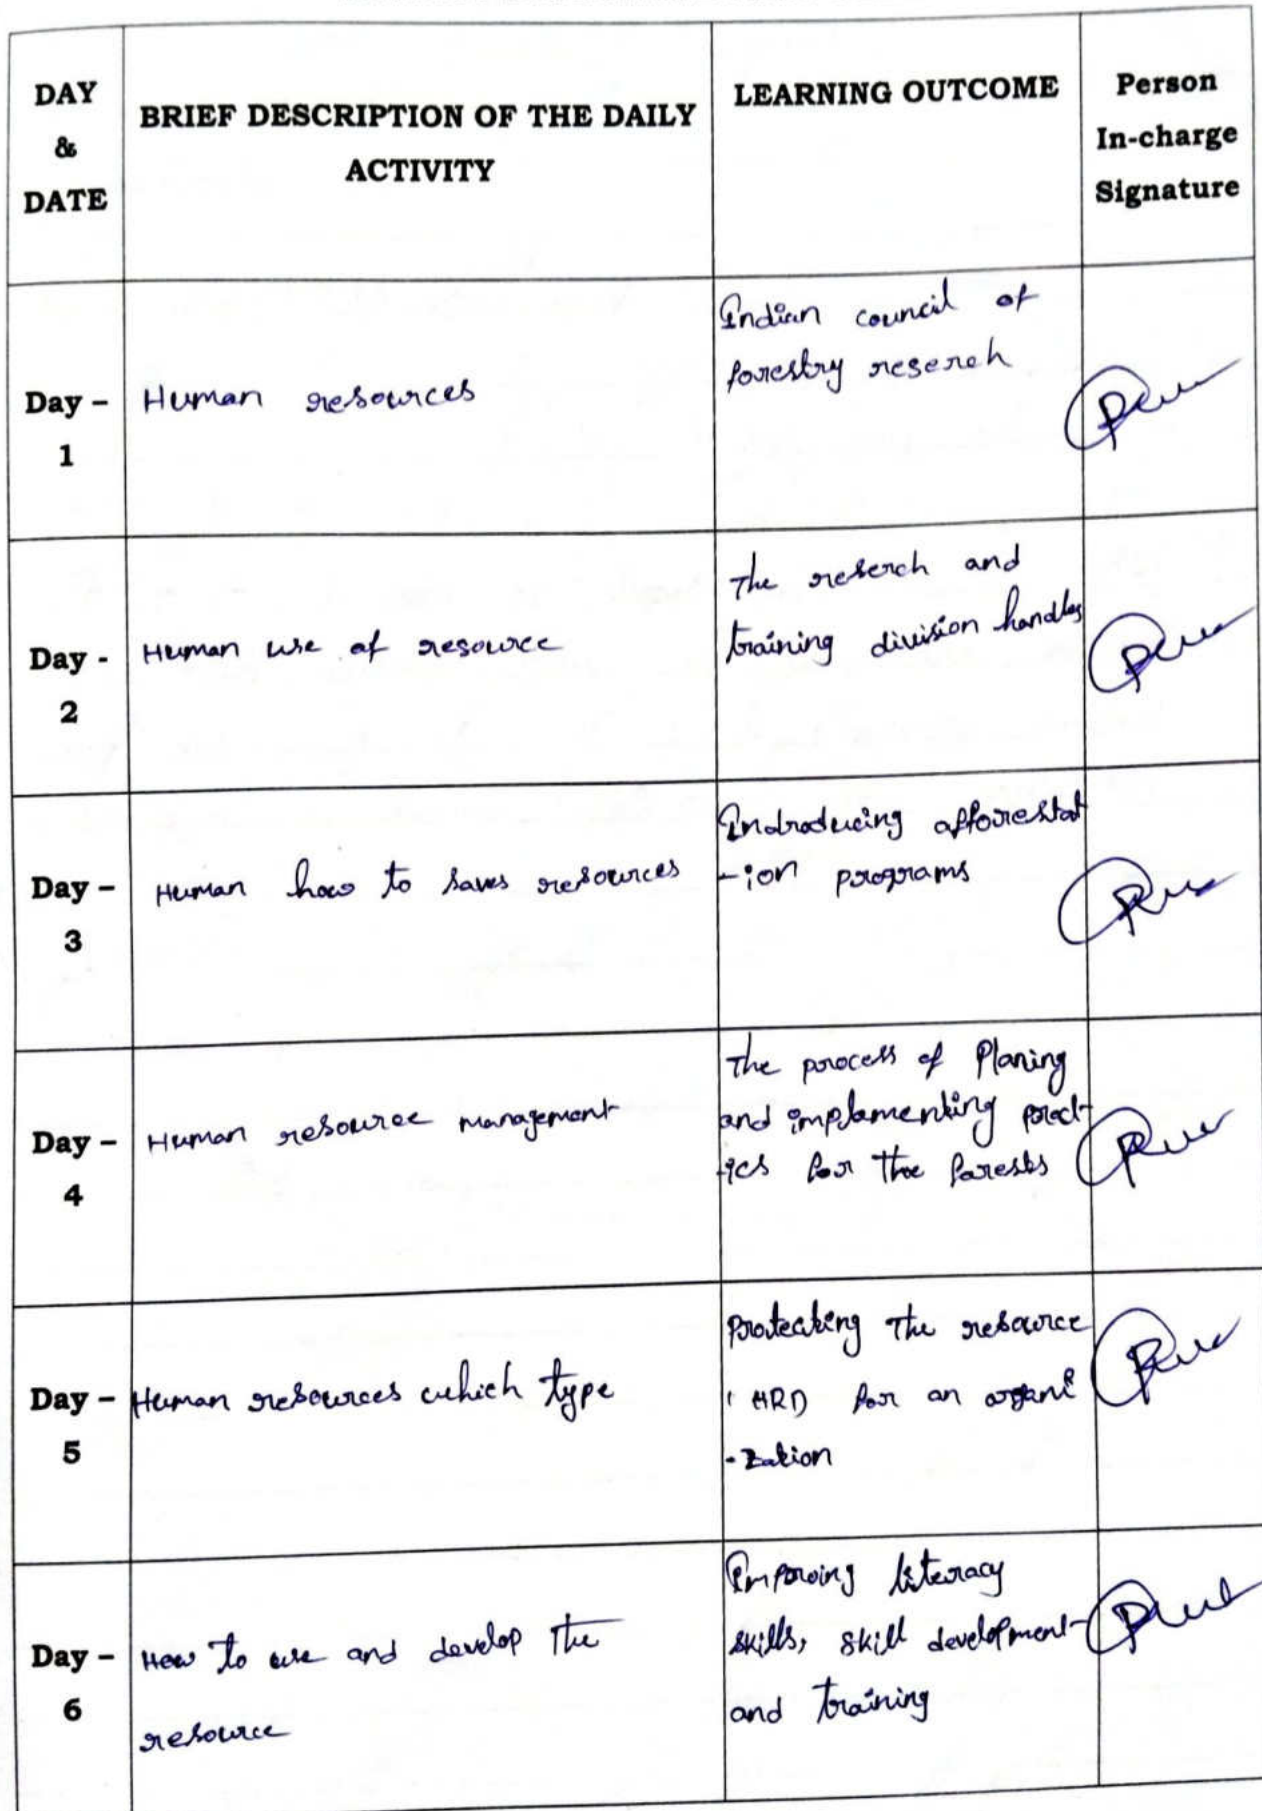 DAY
&
DATE
BRIEF DESCRIPTION OF THE DAILY
ACTIVITY
LEARNING OUTCOME
Person
In-charge
Signature
Day –
1
Human resources
Indian council of
forestry reserch
Day -
2
Human use of resource
The reserch and
training division handles
Day –
3
Human how to saves resources
Indroducing afforestat
-ion programs
Day –
4
Human resource management
The process of Planing
and implamenting pract-
-ics for the forests
Day –
5
Human resources which type
Protecking The resource
HRD for an organi
-zation
Day –
6
How to use and develop The
resource
Improing literacy
skills, skill development
and training